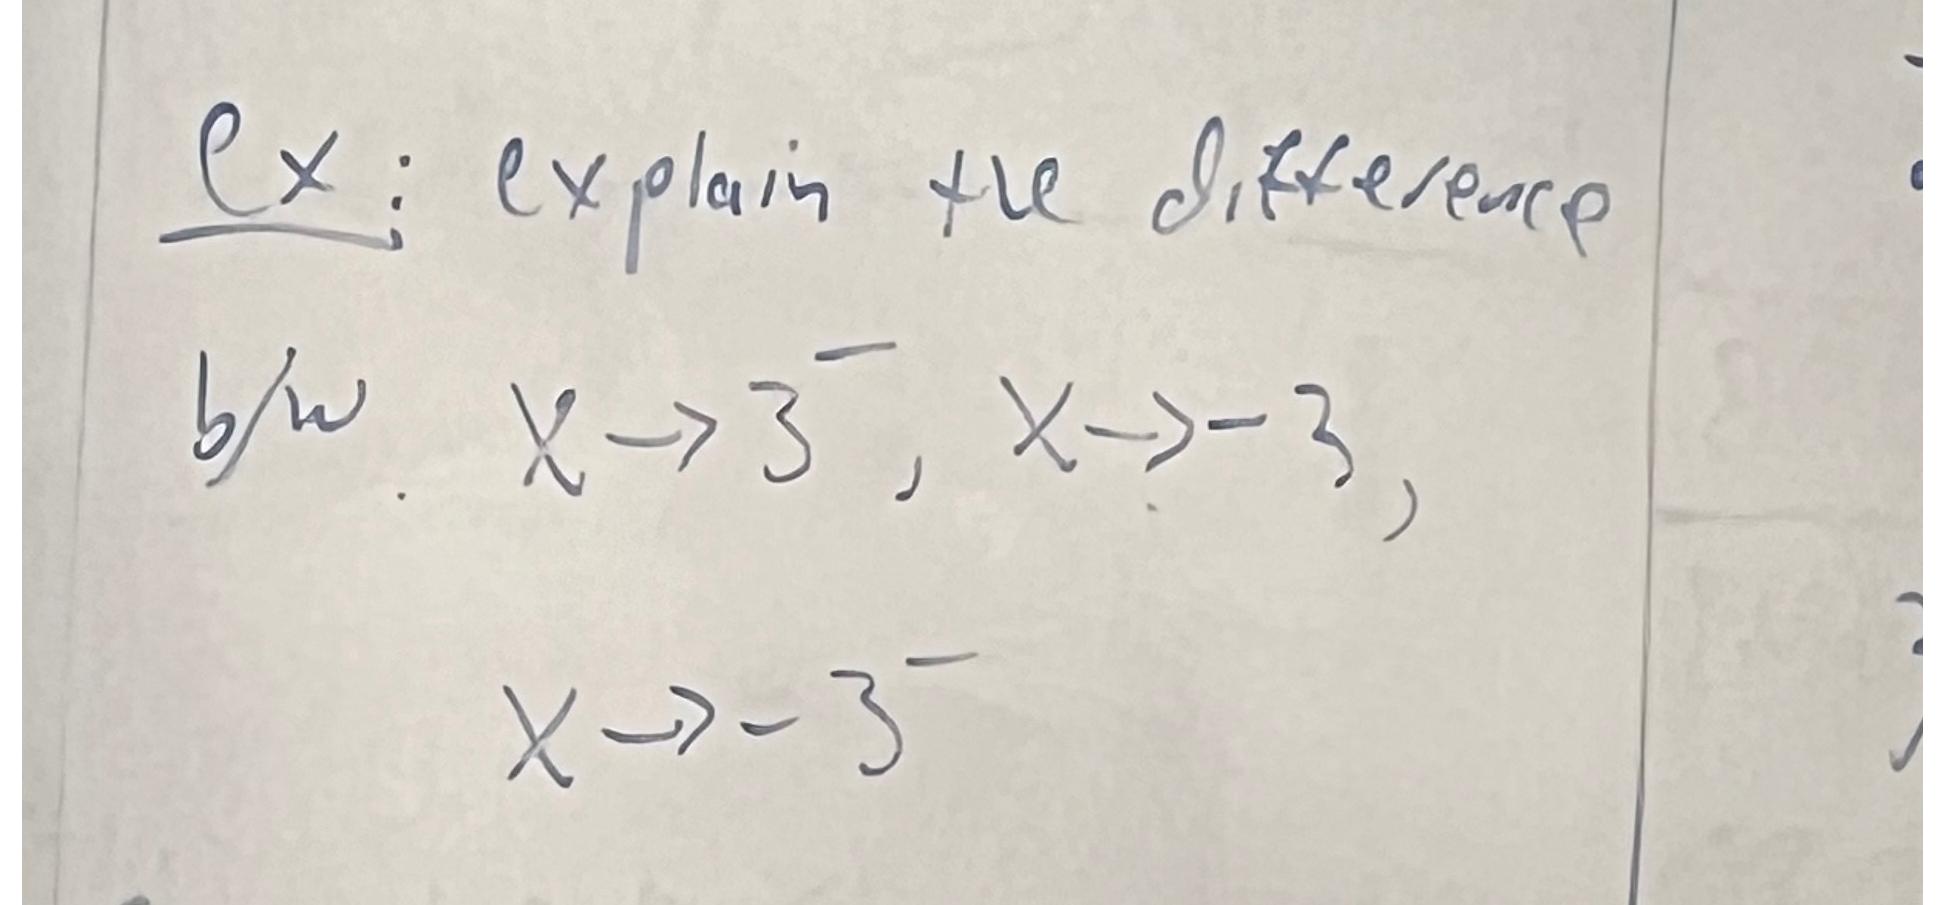 ex: explain the difference
b/w x→3⁻, x→-3,
x→-3⁻